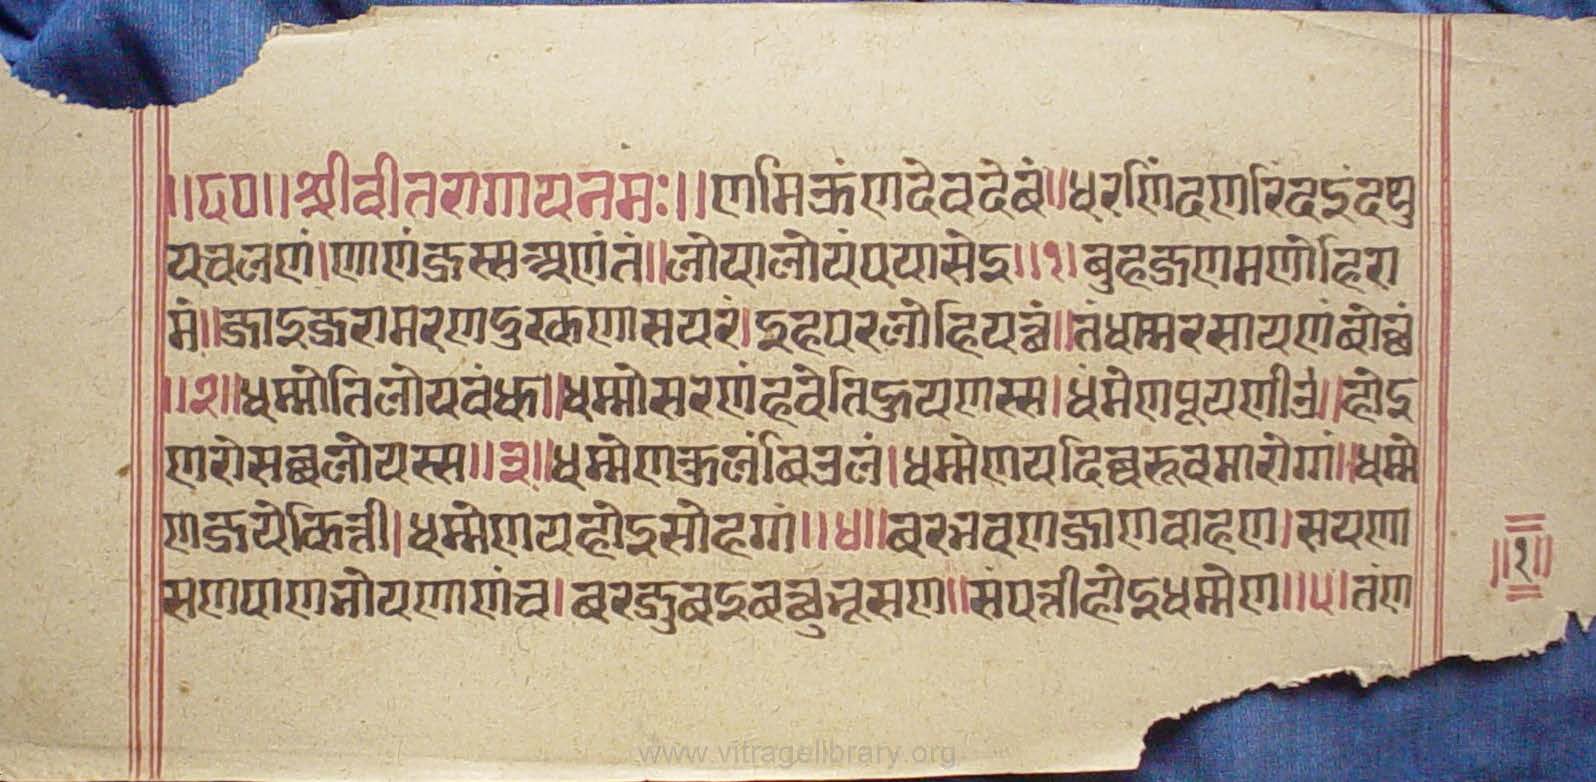 ॥८०॥श्रीवीतरागायनमः॥णमिऊणदेवदेवं॥धरणिंदणरिंदइंदथु
यचलणं।णाणंजस्सअणंतं॥लोयालोयंपयासेइ॥१॥बुहजणमणोहिरा
मं॥जाइजरामरणदुरकणासयरं।इहपरलोहियत्वं॥तंधम्मरसायणंवोच्छं
॥२॥धम्मोतिलोयवंधू॥धम्मोसरणंहवेतिहुयणस्स।धंमेणपूयणीउ॥होइ
णरोसव्वलोयस्स॥३॥धम्मेणकुलंविउलं।धम्मेणयदिव्वरूवमारोग्गं॥धम्मे
णजयेकित्ती।धम्मेणयहोइसोहग्गं॥४॥वरभवणजाणवाहण।सयणा
सणपाणभोयणाणंच।वरजुवइवत्थुभूसण॥संपत्तीहोइधम्मेण॥५॥तंण
॥१॥
www.vitragelibrary.org